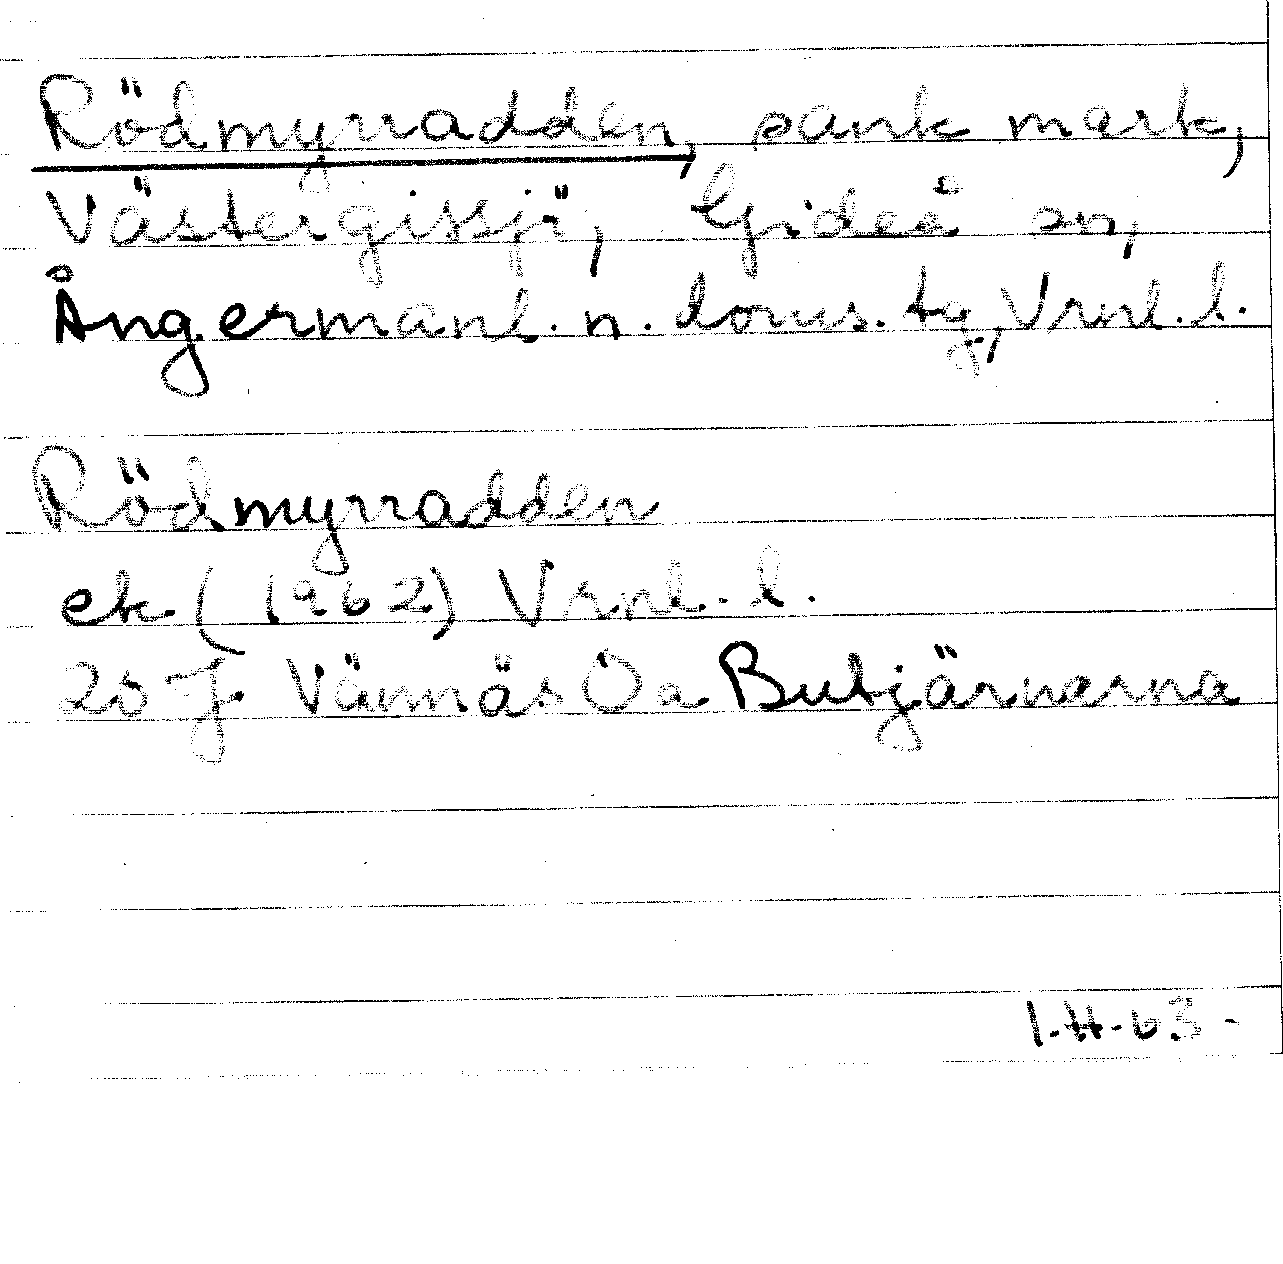 Rödmyrradden, sank mark,
Västergissjö, Gideå sn,
Ångermanl. n. doms. tg, Vrnl. l.
Rödmyrradden
ek (1962) Vrnl. l.
20 J Vännäs Öa Butjärnarna
I.H-63-